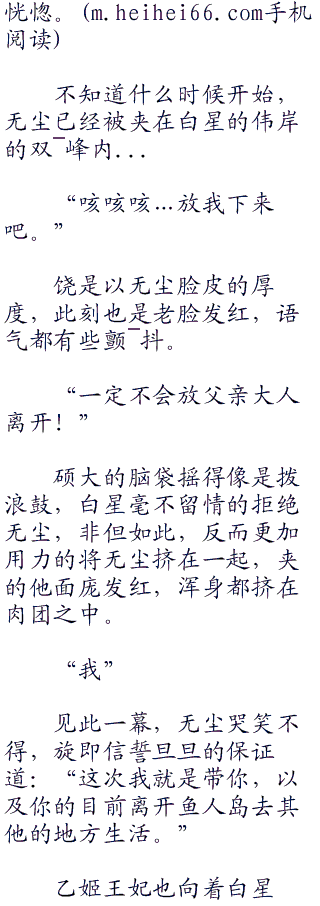 恍惚。(m.heihei66.com手机
阅读)
不知道什么时候开始，
无尘已经被夹在白星的伟岸
的双¯峰内...
“咳咳咳…放我下来
吧。”
饶是以无尘脸皮的厚
度，此刻也是老脸发红，语
气都有些颤¯抖。
“一定不会放父亲大人
离开！”
硕大的脑袋摇得像是拨
浪鼓，白星毫不留情的拒绝
无尘，非但如此，反而更加
用力的将无尘挤在一起，夹
的他面庞发红，浑身都挤在
肉团之中。
“我”
见此一幕，无尘哭笑不
得，旋即信誓旦旦的保证
道：“这次我就是带你，以
及你的目前离开鱼人岛去其
他的地方生活。”
乙姬王妃也向着白星